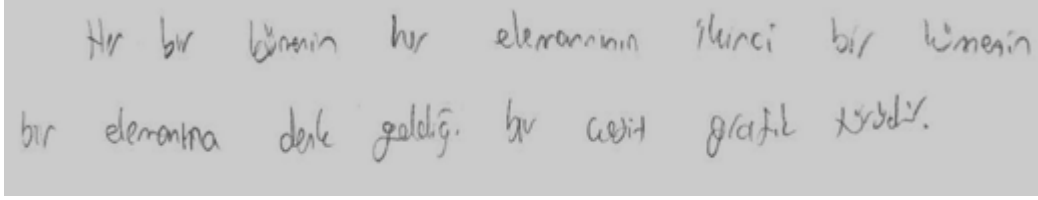 Her bir kümenin her elemanının ikinci bir kümenin
bir elemanına denk geldiği bir çeşit grafik türüdür.